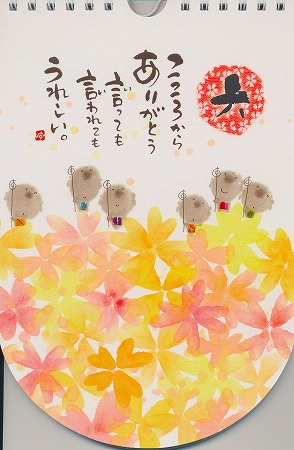 六
こころから
ありがとう
言っても
言われても
うれしい。